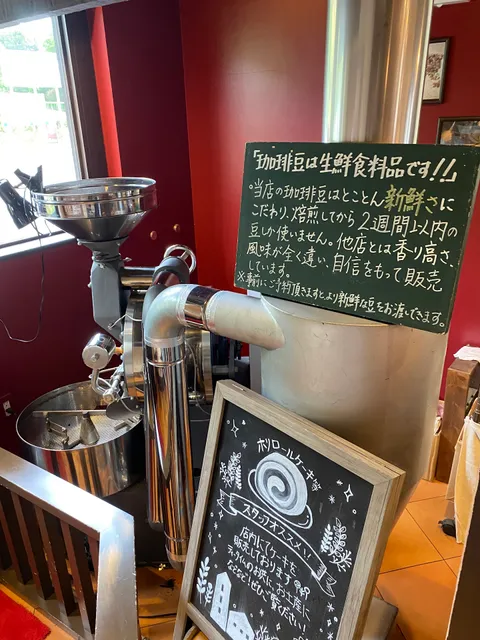 「珈琲豆は生鮮食料品です!!」
○当店の珈琲豆はとことん新鮮さに
こだわり、焙煎してから2週間以内の
豆しか使いません。他店とは香り高さ、
風味が全く違い、自信をもって販売
しています。
※事前にご予約頂きますと、より新鮮な豆をお渡しできます。
ホリロールケーキ等
スタッフオススメ!!
店内にてケーキを
販売しております
ティータイムのお供に、お土産に
ぜひご賞味ください!